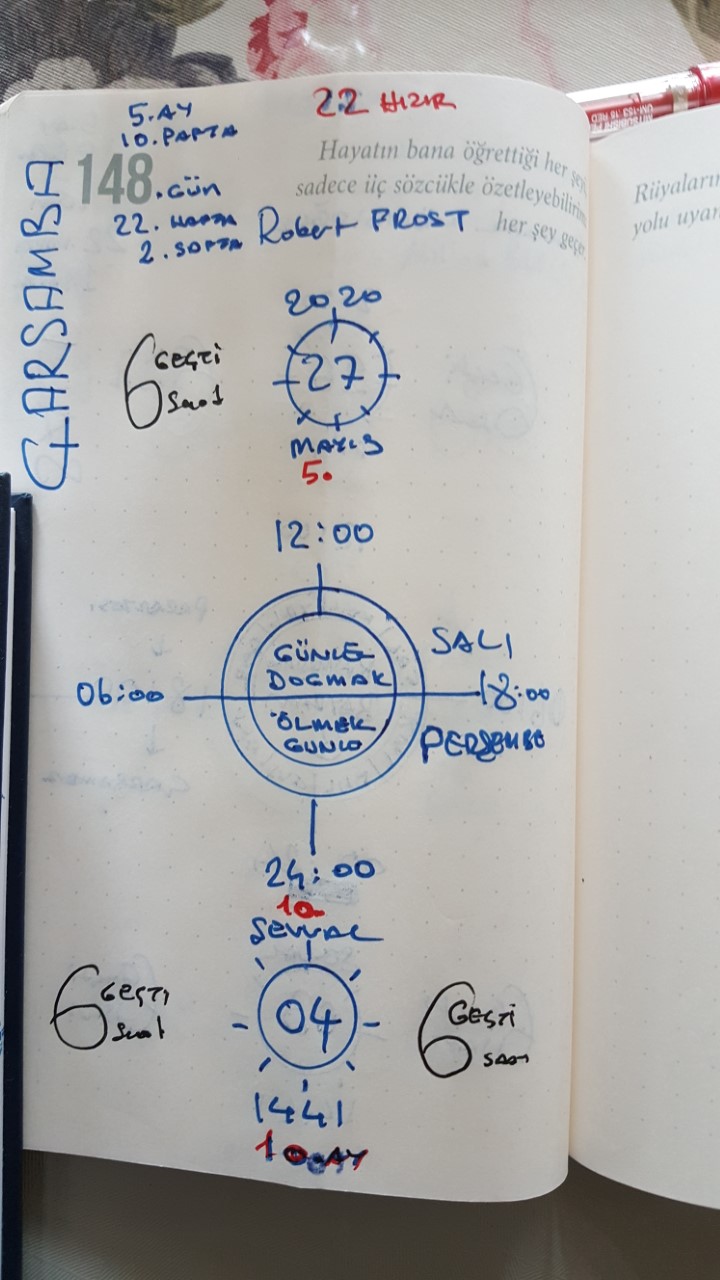 5. AY
10. PAFTA
22 HIZIR
148. GÜN
Hayatın bana öğrettiği her şeyi
sadece üç sözcükle özetleyebilirim
her şey geçer
22. HAFTA
2. SOFTA
Robert FROST
ÇARŞAMBA
Rüyaların
yolu uyan
MITSUBISHI
UM-153 RED
20 20
27
MAYIS
5.
6 GEÇTİ
Saat
12:00
GÜNLE
DOGMAK
SALI
06:00
18:00
ÖLMEK
GUNLE
PERŞEMBE
24:00
10.
ŞEVVAL
04
1441
10. AY
6 GEÇTİ
Saat
6 GEÇTİ
SAAT